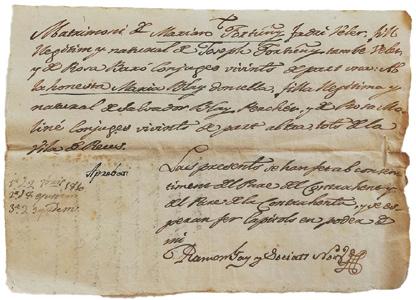 Matrimoni de Mariano Fortuny Jadre Veler, fill
llegitim y natural de Joseph Fortuny, també Veler,
y de Rosa Baró Conjuges vivints de part una: Ab
la honesta Maria Blay donsella, filla llegitima y
natural de Salvador Blay, y de Rosa
Maliné Conjuges vivints de part altra tots de la
Vila de Reus.
Aprobat
Los presents se han fet ab consen
timent del Pare del Contrahent y
del Pare de la Contrahenta, y se es
peran fer Capitols en poder de
mi
Ramon Fay y Sociats Not